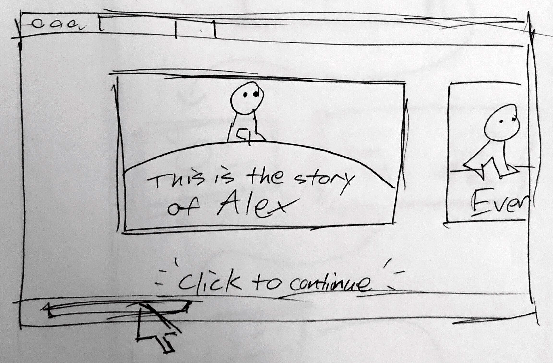 This is the story
of Alex
Ever
Click to continue